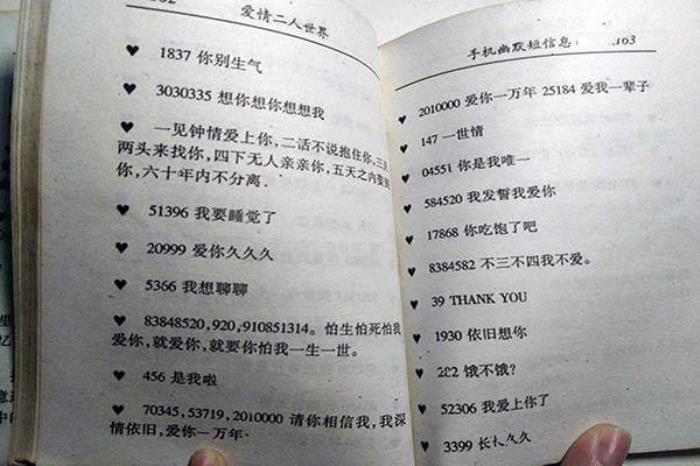 爱情二人世界
♥ 1837 你别生气
♥ 3030335 想你想你想想我
♥ 一见钟情爱上你,二话不说抱住你,三
两头来找你,四下无人亲亲你,五天之内娶到
你,六十年内不分离.
♥ 51396 我要睡觉了
♥ 20999 爱你久久久
♥ 5366 我想聊聊
♥ 83848520,920,910851314。怕生怕死怕我
爱你,就爱你,就要你怕我一生一世。
♥ 456 是我啦
♥ 70345,53719,2010000 请你相信我,我深
情依旧,爱你一万年·
手机幽默短信息 163
♥ 2010000 爱你一万年 25184 爱我一辈子
♥ 147 一世情
♥ 04551 你是我唯一
♥ 584520 我发誓我爱你
♥ 17868 你吃饱了吧
♥ 8384582 不三不四我不爱。
♥ 39 THANK YOU
♥ 1930 依旧想你
♥ 282 饿不饿?
♥ 52306 我爱上你了
♥ 3399 长长久久